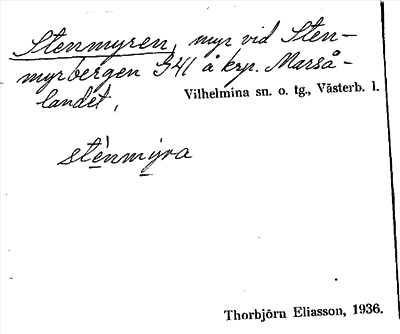 Stenmyren, myr vid Sten-
myrbergen G41 å krp. Marså-
landet,
Vilhelmina sn. o. tg., Västerb. l.
sténmýra
Thorbjörn Eliasson, 1936.